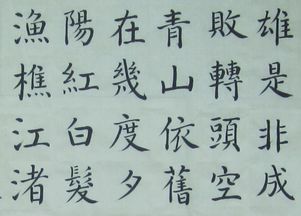 雄是非成
敗轉頭空
青山依舊
在幾度夕
陽紅白髮
漁樵江渚